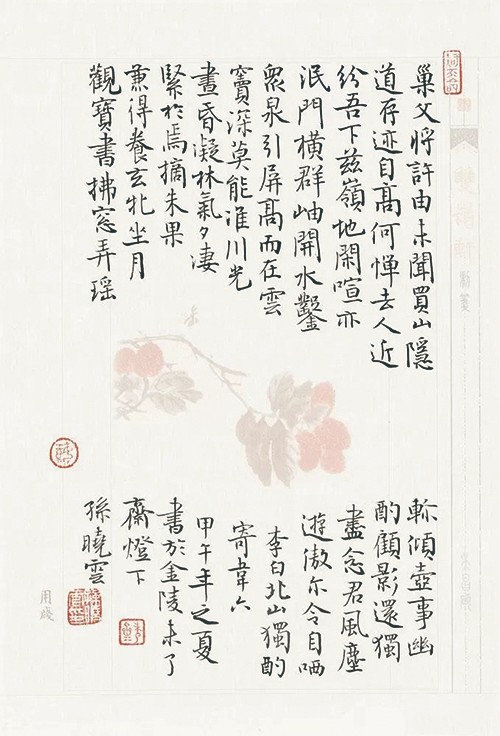 巢父将許由未聞買山隱
道存迹自高何憚去人近
紛吾下兹嶺地閑喧亦
泯門橫群岫開水鑿
衆泉引屏高而在雲
竇深莫能准川光
晝昏凝林氣夕凄
緊於焉摘朱果
兼得養玄牝坐月
觀寶書拂窓弄瑶
軫傾壺事幽
酌顧影還獨
盡念君風塵
遊傲尔令自哂
李白北山獨酌
寄韋六
甲午年之夏
書於金陵未了
齋燈下
孫曉雲
用牋